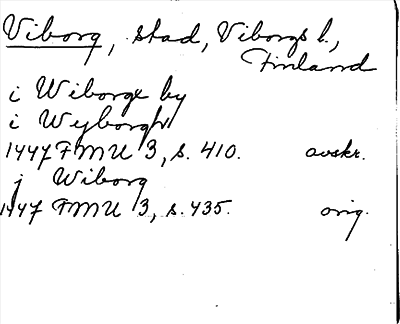 Viborg, stad, Viborgs l.,
Finland
i Wiborge by
i Wyborgh
1447 FMU 3, s. 410. avskr.
j Wiborg
1447 FMU 3, s. 435. orig.